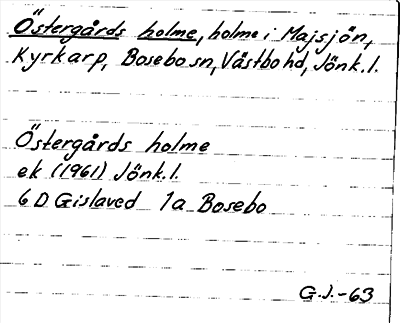 Östergårds holme, holme i Majsjön,
Kyrkarp, Bosebo sn, Västbo hd, Jönk. l.
Östergårds holme
ek (1961) Jönk. l.
6 D Gislaved 1a Bosebo
G.J.-63